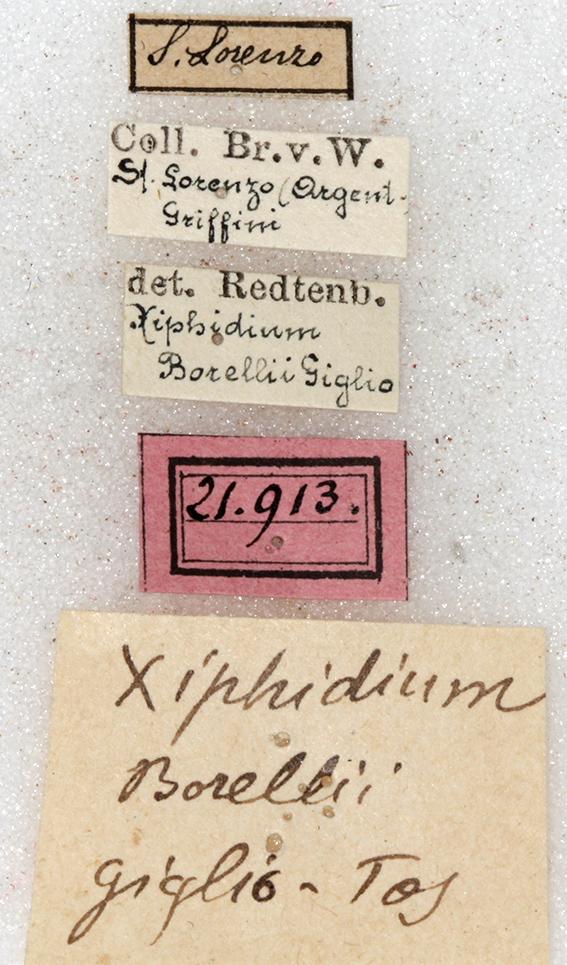 S. Lorenzo
Coll. Br. v. W.
St. Lorenzo (Argent.
Griffini
det. Redtenb.
Xiphidium
Borellii Giglio
21.913.
Xiphidium
Borellii
giglio - Tos